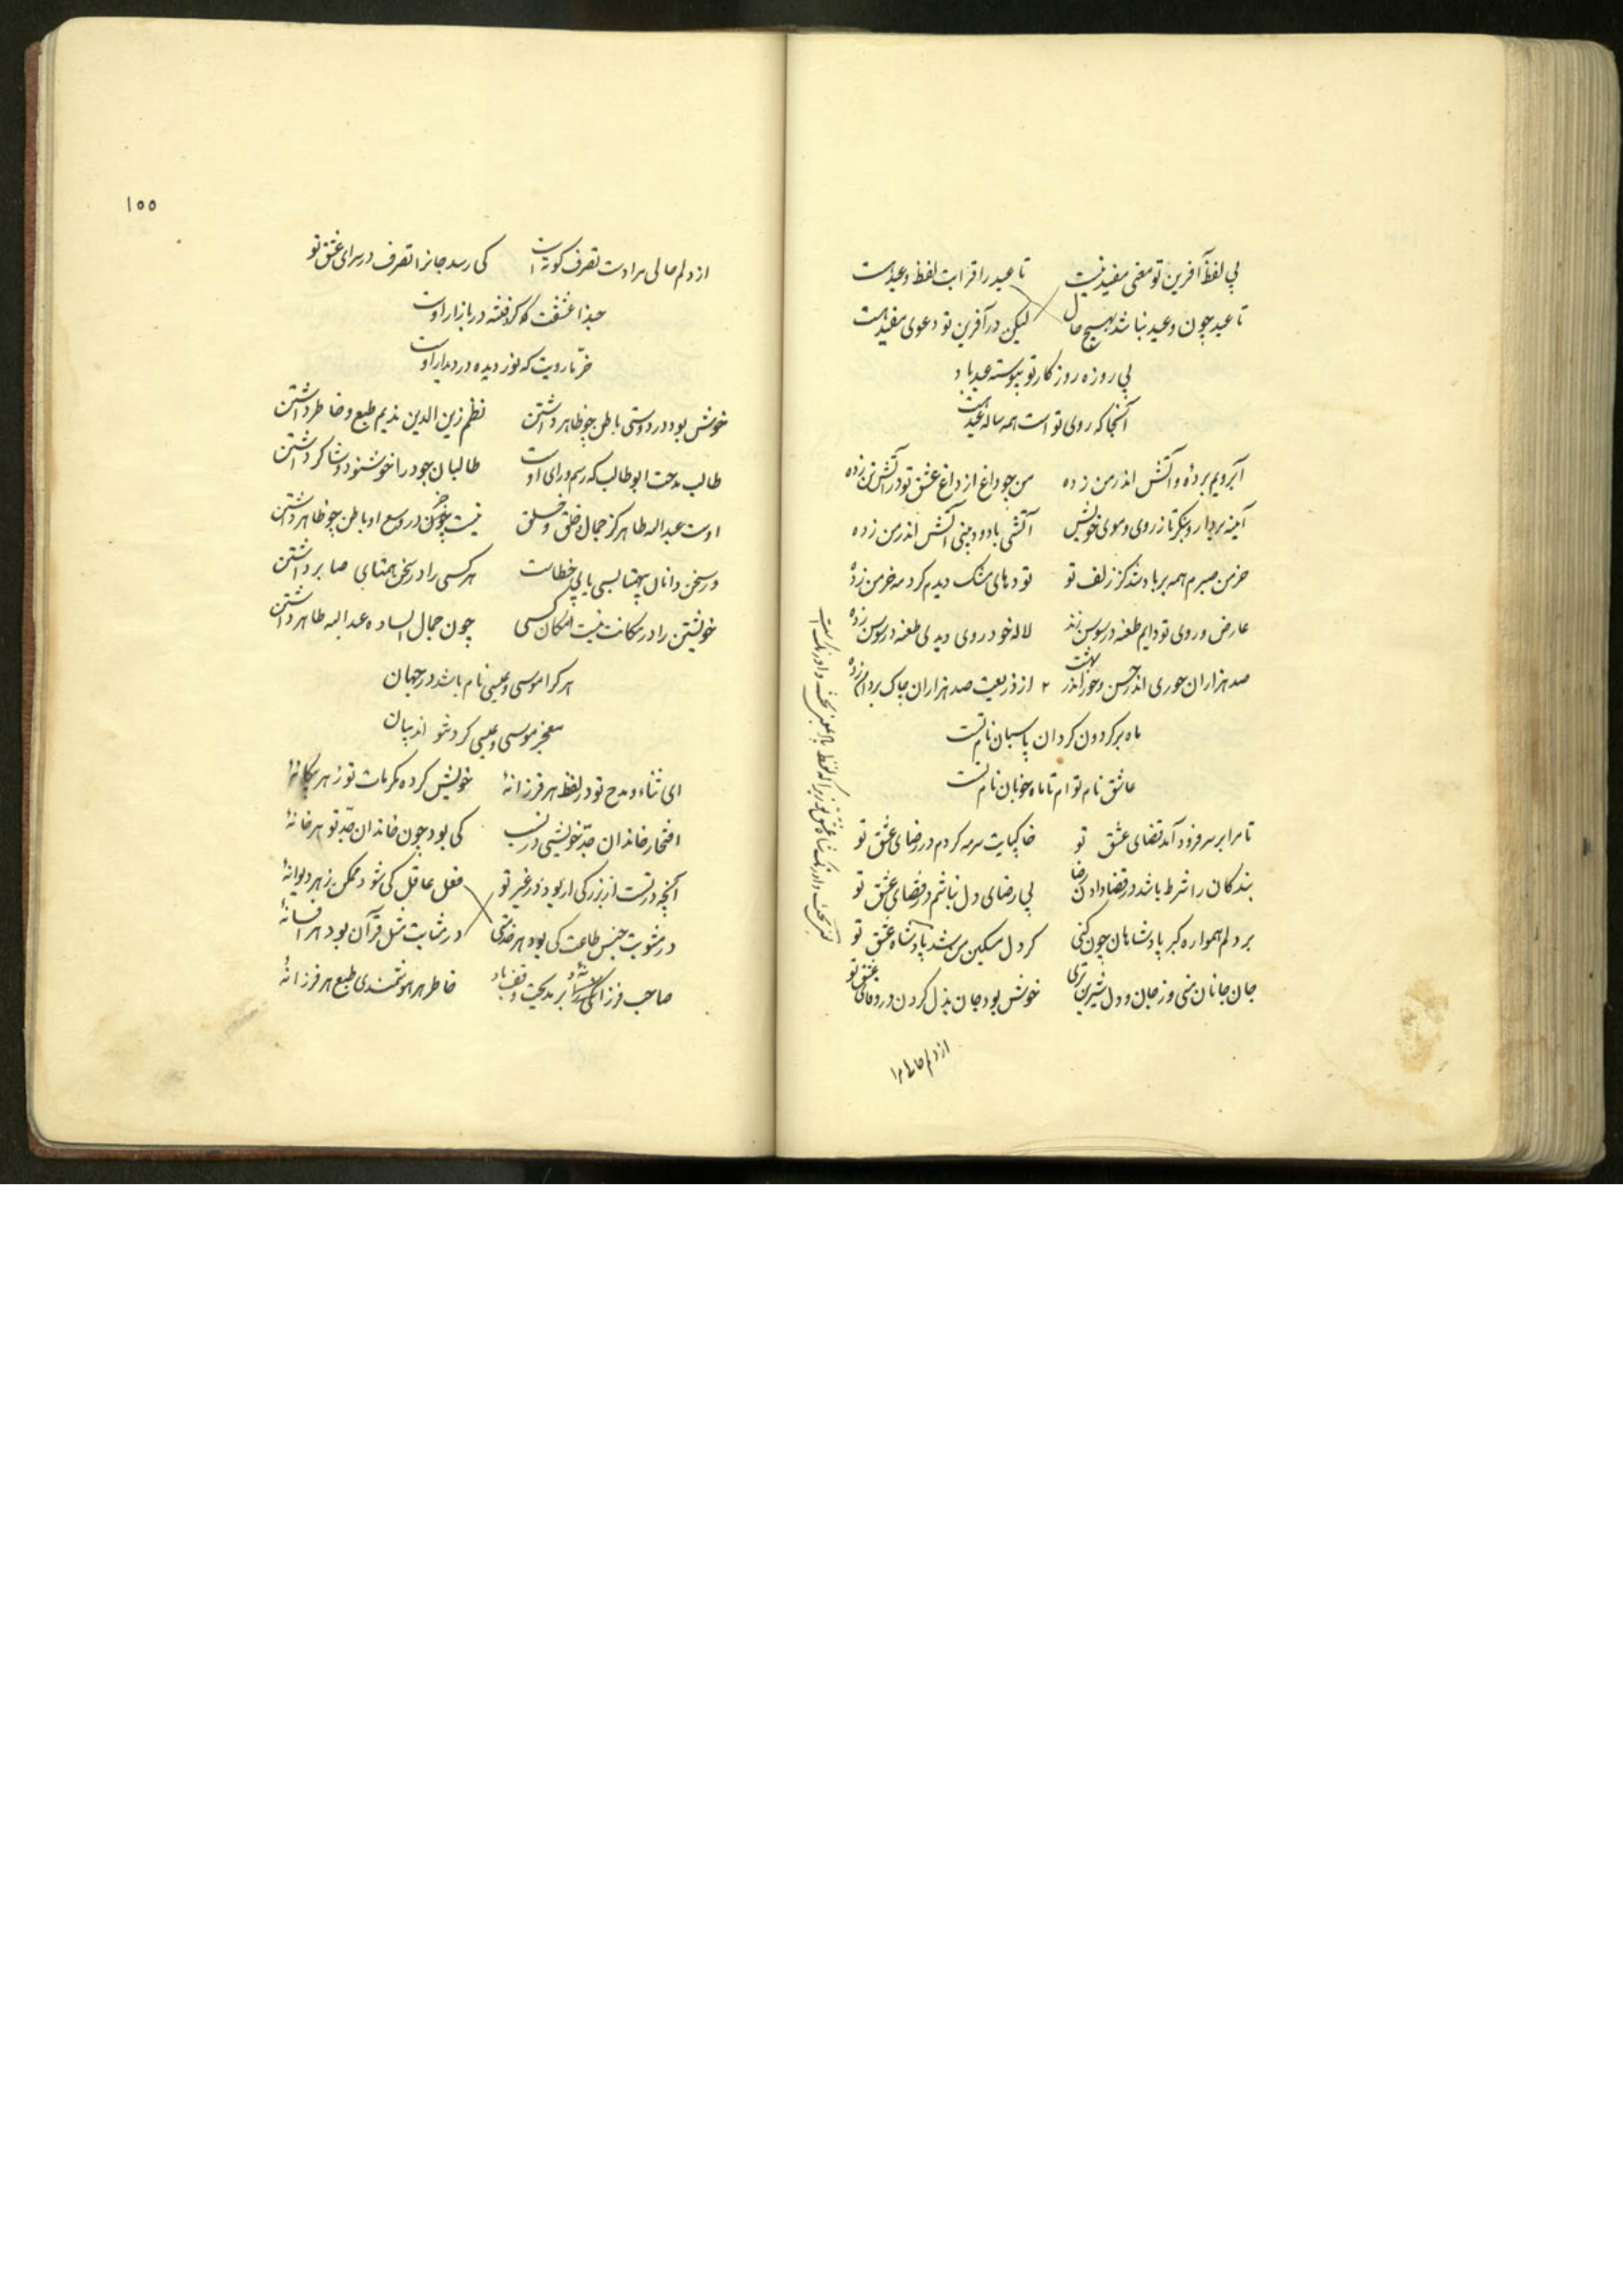 بی لفظ آفرین تو معنی مفید نیست تا عید را قرابت لفظ وعید هست
تا عید چون وعید نباشد بهیچ حال لیکن در آفرین تو دعوی مفید هست
بی روزه روزگار تو پیوسته عید باد
آنجا که روی تو است همه ساله عید هست
آبرویم برده و آتش اندر من زده من چو داغ از داغ عشق تو در آتش تن زده
آینه بردار و بنگر تا ز روی و موی خویش آتشی با دود بینی آتش اندر من زده
خرمن صبرم همه بر باد شد کز زلف تو تودهای مشک دیدم گرد مه خرمن زده
عارض و روی تو دایم طعنه در سوسن زند لاله خود روی دیدی طعنه در سوسن زده
صد هزاران حوری اندر حسن و حور اندر بهشت از ذریعت صد هزاران چاک بر دامن زده
ماه بر گردون گردان پاسبان نام تست
عاشق نام توام تا ماه خوبان نام تست
تا مرا بر سر فرود آمد قضای عشق تو خاکپایت سرمه کردم در رضای عشق تو
بندگان را شرط باشد در قضا دادن رضا بی رضای دل نباشم در قضای عشق تو
بر دلم همواره کبر پادشاهان چون کنی گر دل مسکین من شد پادشاه عشق تو
جان جانان منی وز جان و دل شیرین تری خوش بود جان بذل کردن در وفای عشق تو
از دلم خالی مرا
۱۵۵
از دلم خالی مرا دست تصرف کوته است کی رسد جانرا تصرف در سرای عشق تو
حبذا عشقت که گرد فتنه در بازار اوست
خرّما رویت که نور دیده در دیدار اوست
خوش بود در دوستی باطن چو ظاهر داشتن نظم زین الدین ندیم طبع و خاطر داشتن
طالب مدحت ابوطالب که رسم و رای اوست طالبان جود را خوشنود و شاکر داشتن
اوست عبدالله طاهر کز جمال خلق و خلق نیست چو در وسع او باطن چو ظاهر داشتن
در سخن دانان بهمتا بسی یابی خطاست هر کسی را در سخن همتای صابر داشتن
خویشتن را در مکانت نیست امکان کسی چون جمال الساده عبدالله طاهر داشتن
هر کرا موسی و عیسی نام باشد در جهان
معجز موسی و عیسی کرد شود اندر بیان
ای ثناء و مدح تو در لفظ هر فرزانهٔ خویش کرده مکرمات تو ز هر بیگانهٔ
افتخار خاندان جدّ خویشی در نسب کی بود چون خاندان جدّ تو هر خانهٔ
آنچه در تست از بزرگی ار بود در غیر تو فعل عاقل کی شود ممکن ز هر دیوانهٔ
در مثوبت جنس طاعت کی بود هر خدمتی در مثابت مثل قرآن بود هر افسانهٔ
صاحب بر مدحیت وقف باد خاطر هر هوشمندی طبع هر فرزانهٔ